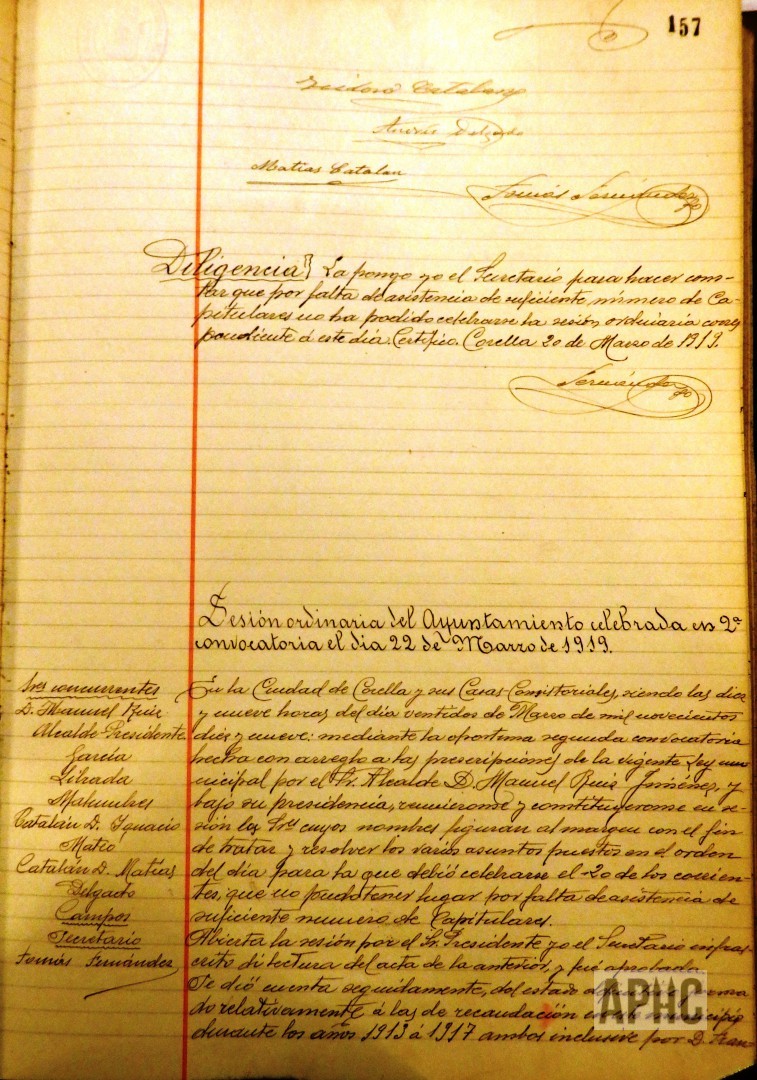 157
Isidoro Catalan
Andrés Delgado
Matias Catalan
Tomás Fernández
Diligencia} La pongo yo el Secretario para hacer cons-
tar que por falta de asistencia de suficiente número de Ca-
pitulares no ha podido celebrarse la sesión ordinaria corres
pondiente á este día. Certifico. Corella 20 de Marzo de 1919.
Fernández
Sesión ordinaria del Ayuntamiento celebrada en 2ª
convocatoria el dia 22 de Marzo de 1919.
Sres concurrentes
D. Manuel Ruiz
Alcalde-Presidente
García
Librada
Malumbres
Catalán D. Ignacio
Mateo
Catalán D. Matías
Delgado
Campos
Secretario
Tomás Fernández
En la Ciudad de Corella y sus Casas Consistoriales, siendo las diez
y nueve horas del día ventidos de Marzo de mil novecientos
diez y nueve: mediante la oportuna segunda convocatoria
hecha con arreglo a las prescripciones de la vigente Ley mu-
nicipal por el Sr. Alcalde D. Manuel Ruiz Jiménez, y
bajo su presidencia, reunieronse y constituyeronse en se-
sión los Sres cuyos nombres figuran al margen con el fin
de tratar y resolver los varios asuntos puestos en el orden
del día para la que debió celebrarse el 20 de los corrien-
tes, que no pudo tener lugar por falta de asistencia de
suficiente numero de Capitulares.
Abierta la sesión por el Sr. Presidente yo el Secretario infras-
crito di lectura del acta de la anterior, y fué aprobada.
Se dió cuenta seguidamente, del estado de
do relativamente á las de recaudación
durante los años 1913 á 1917 ambos inclusive por D. Fran-
APHC